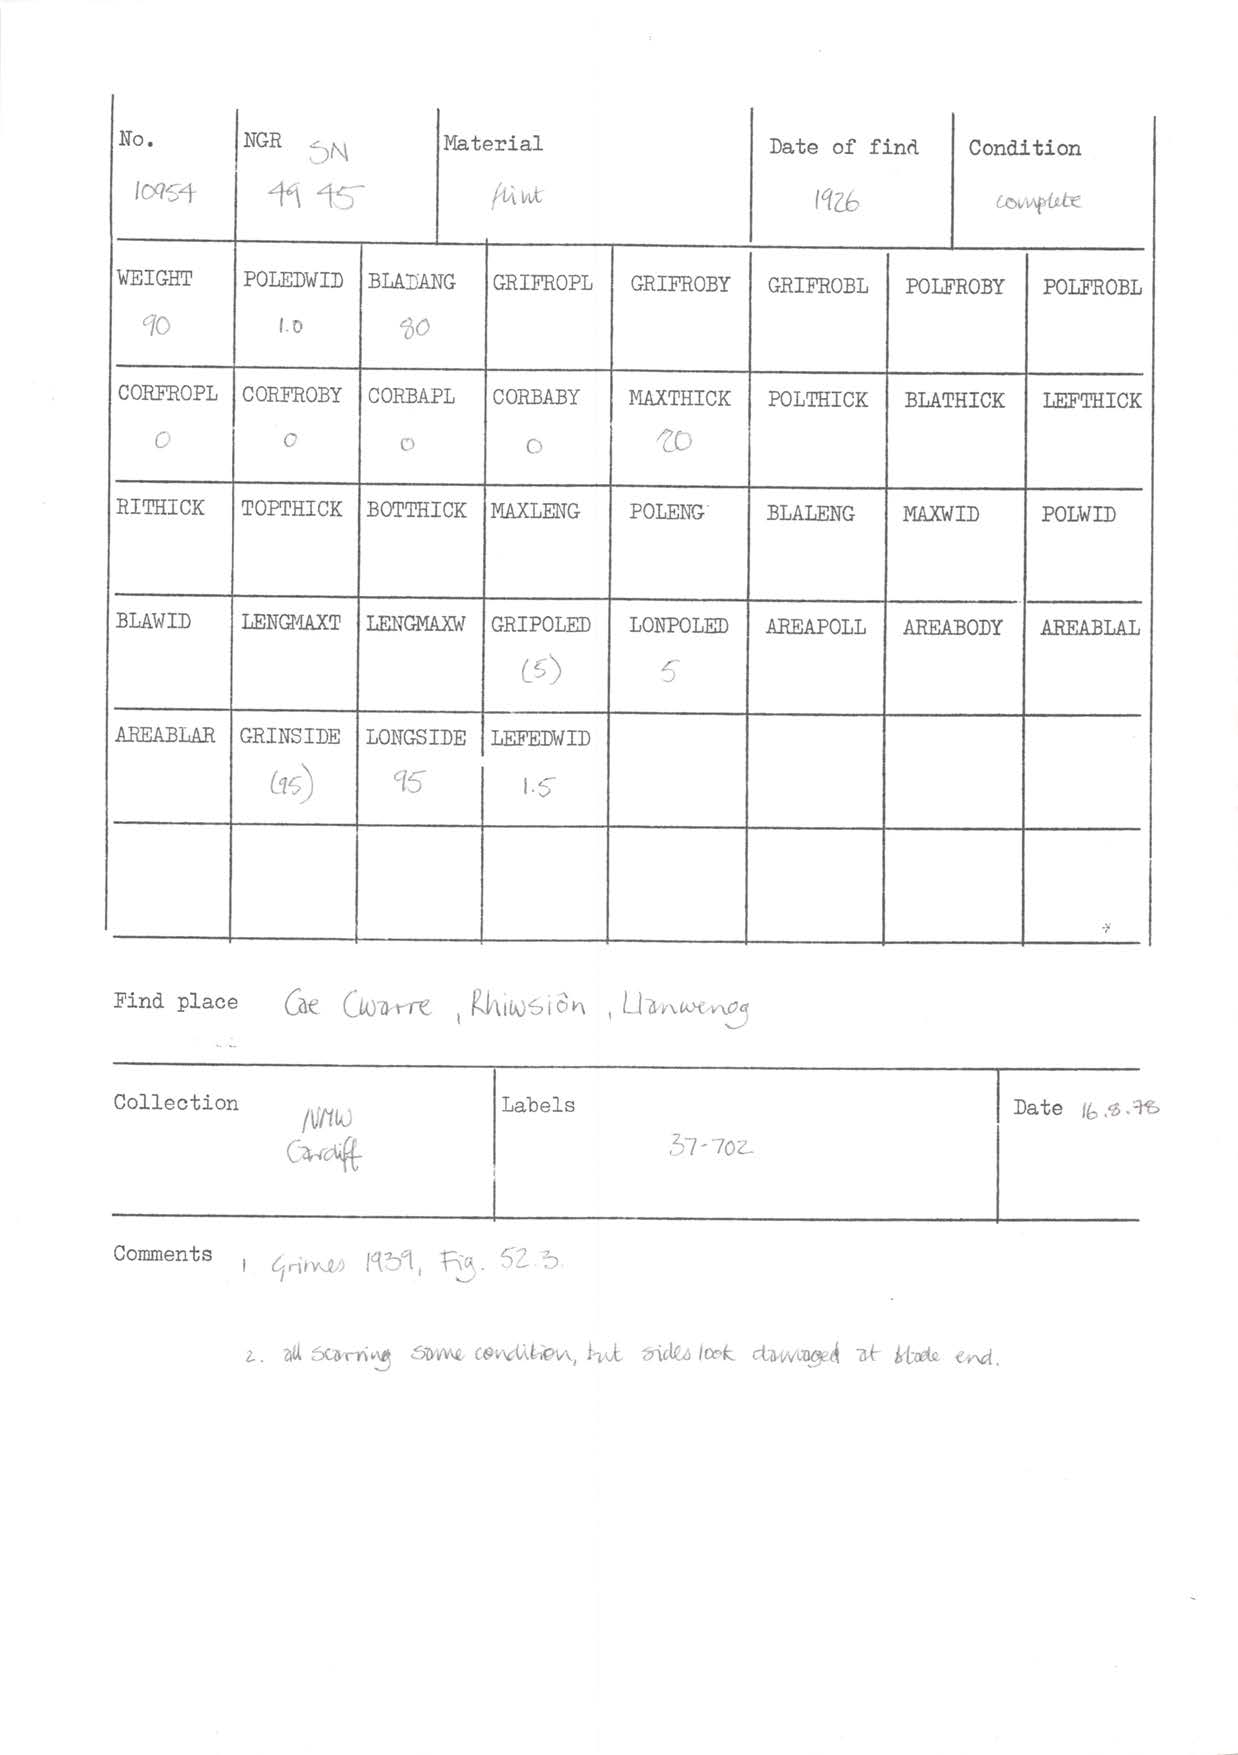 No. NGR SN Material Date of find Condition
10954 49 45 flint 1926 complete
WEIGHT POLEDWID BLADANG GRIFROPL GRIFROBY GRIFROBL POLFROBY POLFROBL
90 1.0 80
CORFROPL CORFROBY CORBAPL CORBABY MAXTHICK POLTHICK BLATHICK LEFTHICK
0 0 0 0 20
RITHICK TOPTHICK BOTTHICK MAXLENG POLENG BLALENG MAXWID POLWID
BLAWID LENGMAXT LENGMAXW GRIPOLED LONPOLED AREAPOLL AREABODY AREABLAL
(5) 5
AREABLAR GRINSIDE LONGSIDE LEFEDWID
(95) 95 1.5
Find place Cae Cwarre, Rhiwsiôn, Llanwenog
Collection NMW Labels Date 16.8.78
Cardiff 37-702
Comments 1 Grimes 1939, Fig. 52.3.
2. all scarring same condition, but sides look damaged at blade end.